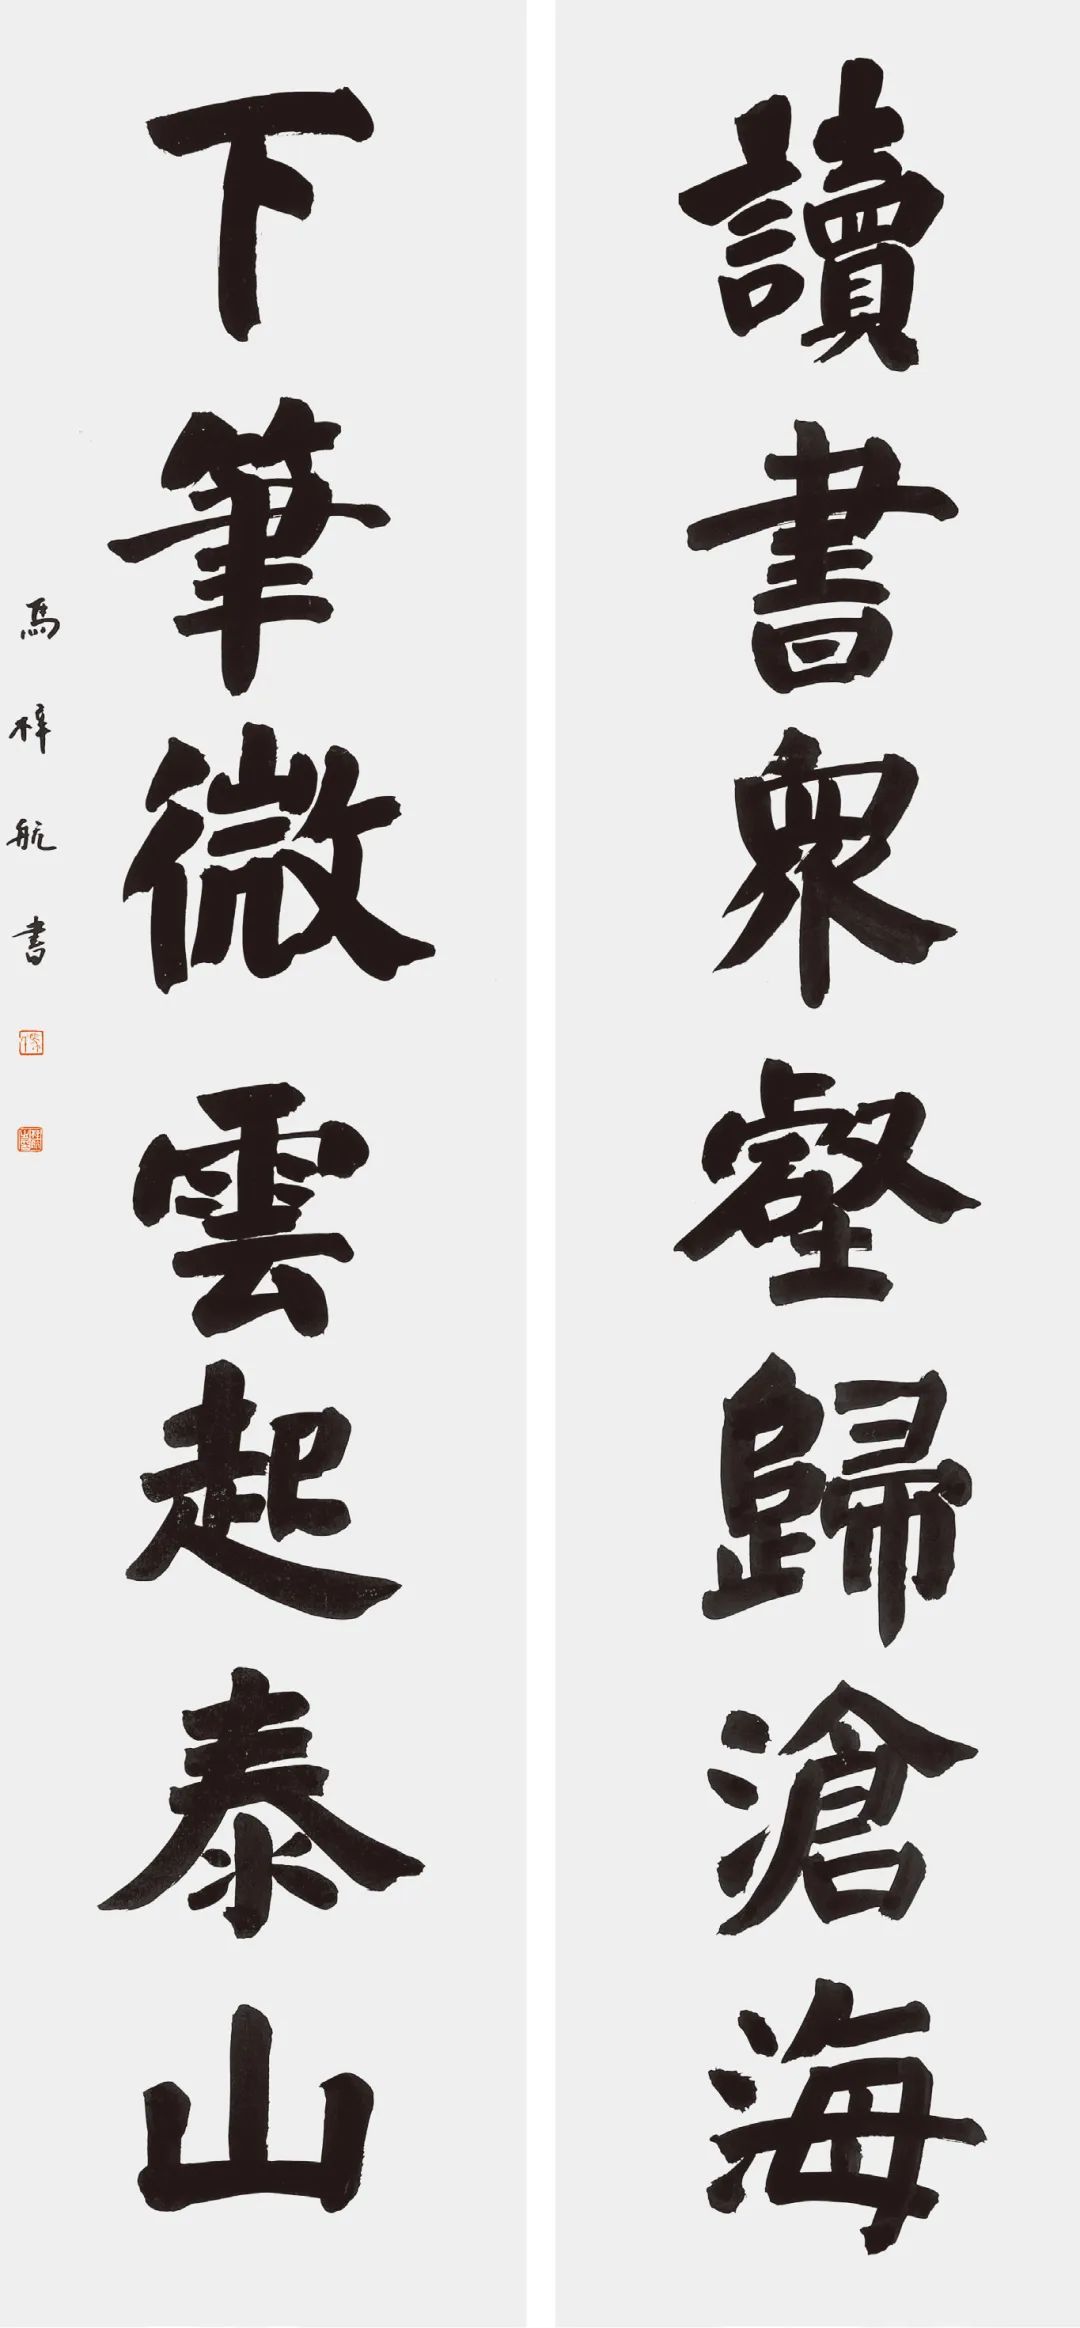 讀書衆壑歸滄海
下筆微雲起泰山
馬梓航書